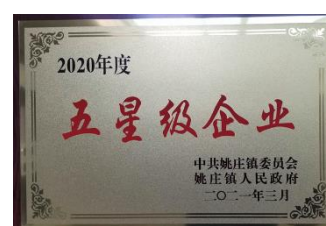 2020年度
五星级企业
中共姚庄镇委员会
姚庄镇人民政府
二〇二一年三月